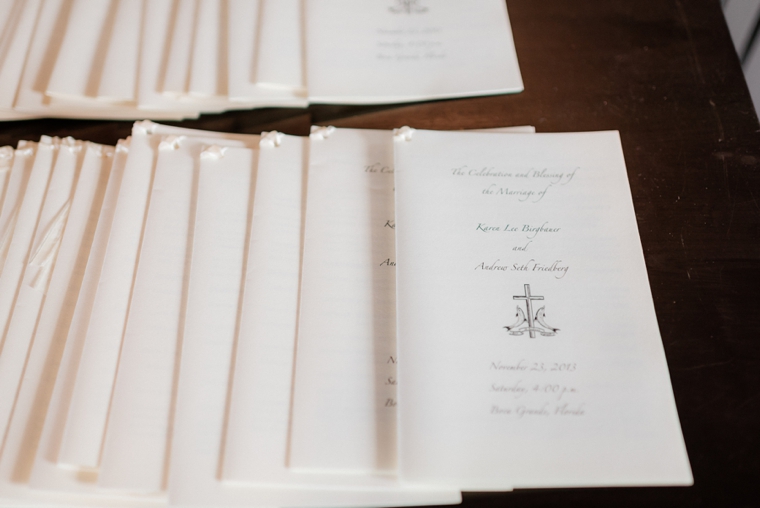 The Celebration and Blessing of
the Marriage of
Karen Lee Bergbauer
and
Andrew Seth Friedberg
November 23, 2013
Saturday, 4:00 p.m.
Boca Grande, Florida